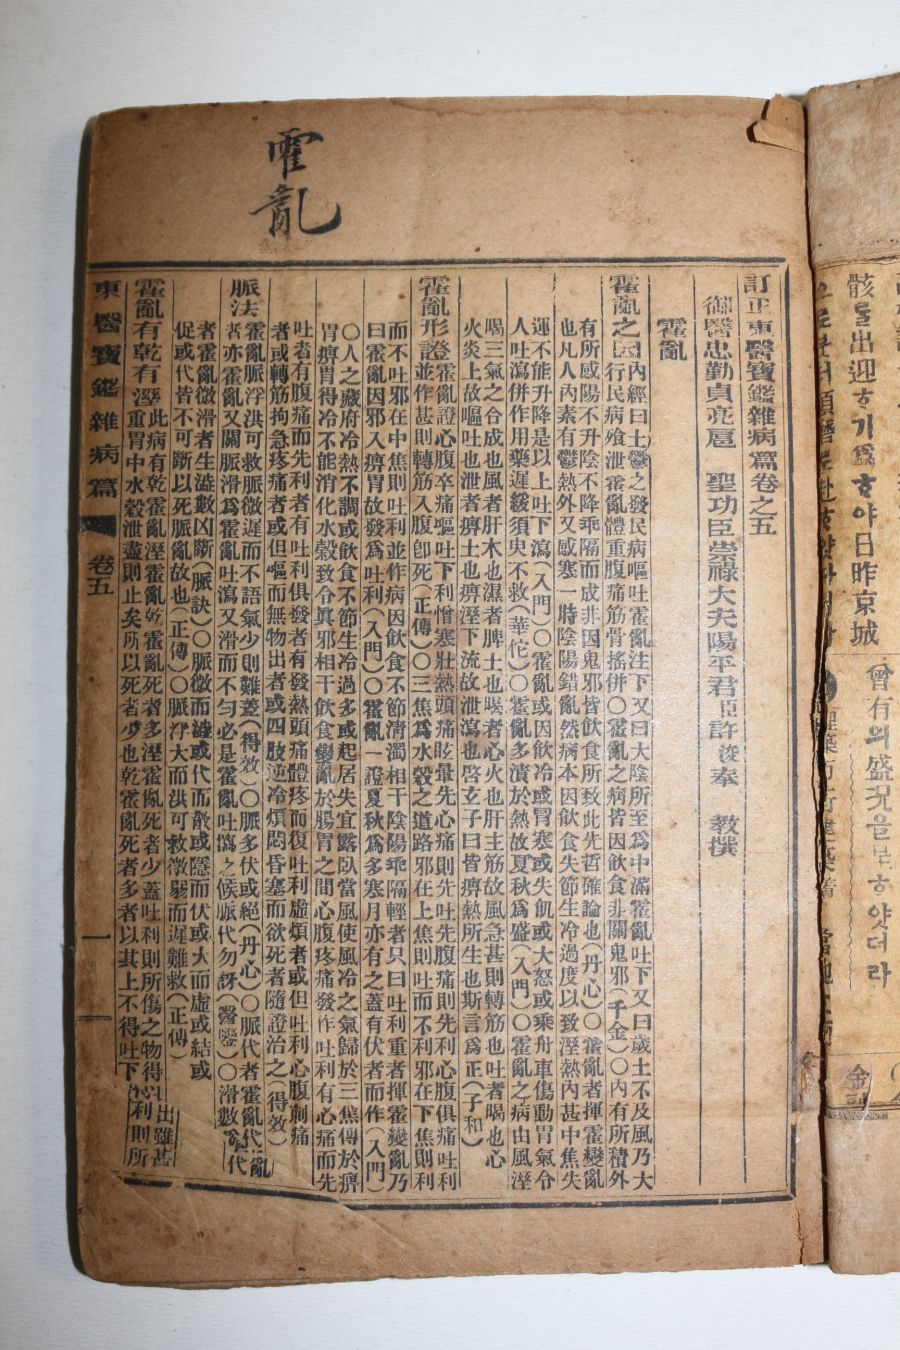 霍亂
訂正東醫寶鑑雜病篇卷之五
御醫忠勤貞亮扈 聖功臣崇祿大夫陽平君臣許浚奉 教撰
霍亂
霍亂之因
內經曰土鬱之發民病嘔吐霍亂注下又曰大陰所至爲中滿霍亂吐下又曰歲土不及風乃大
行民病飱泄霍亂體重腹痛筋骨搖併〇霍亂之病皆因飮食非關鬼邪(千金)〇內有所積外
有所感陽不升陰不降乖隔而成非因鬼邪皆飮食所致此先哲確論也(丹心)〇霍亂者揮霍變亂
也凡人內素有鬱熱外又感寒一時陰陽錯亂然病本因飮食失節生冷過度以致溼熱內甚中焦失
運不能升降是以上吐下瀉(入門)〇霍亂或因飮冷或胃寒或失飢或大怒或乘舟車傷動胃氣令
人吐瀉併作用藥遲緩須臾不救(華佗)〇霍亂多濆於熱故夏秋爲盛(入門)〇霍亂之病由風溼
暍三氣之合成也風者肝木也濕者脾土也暍者心火也肝主筋故風急甚則轉筋也吐者暍也心
火炎上故嘔吐也泄者脾土也脾溼下流故泄瀉也啓玄子曰皆脾熱所生也斯言爲正(子和)
霍亂形證
霍亂證心腹卒痛嘔吐下利憎寒壯熱頭痛眩暈先心痛則先吐先腹痛則先利心腹俱痛吐利
並作甚則轉筋入腹卽死(正傳)〇三焦爲水穀之道路邪在上焦則吐而不利邪在下焦則利
而不吐邪在中焦則吐利並作病因飮食不節淸濁相干陰陽乖隔輕者只曰吐利重者揮霍變亂乃
曰霍亂因邪入脾胃故發爲吐利(入門)〇霍亂一證夏秋爲多寒月亦有之蓋有伏暑而作(入門)
〇人之藏府冷熱不調或飮食不節生冷過多或起居失宜露臥當風使風冷之氣歸於三焦傳於脾
胃脾胃得冷不能消化水穀致令眞邪相干飮食變亂於腸胃之間心腹疼痛發作吐利有心痛而先
吐者有腹痛而先利者有吐利俱發者有發熱頭痛體疼而復吐利虛煩者或但吐利心腹刺痛
者或轉筋拘急疼痛者或但嘔而無物出者或四肢逆冷煩悶昏塞而欲死者隨證治之(得效)
脈法
霍亂脈浮洪可救脈微遲而不語氣少則難差(得效)〇脈多伏或絕(丹心)〇脈代者霍亂代亂
者亦霍亂又關脈滑爲霍亂吐瀉又滑而不勻必是霍亂吐瀉之候脈代勿訝(醫鑒)〇滑數
代
者霍亂微滑者生澁數凶斷(脈訣)〇脈微而澁或代而散或隱而伏或大而虛或結或
促或代皆不可斷以死脈亂故也(正傳)〇脈浮大而洪可救微弱而遲難救(正傳)
霍亂有乾有溼
此病有乾霍亂溼霍亂乾霍亂死者多溼霍亂死者少蓋吐利則所傷之物得以出雖甚
重胃中水穀泄盡則止矣所以死者少也乾霍亂死者多者以其上不得吐下
利則所
東醫寶鑑雜病篇 卷五 一
骸들出迎ᄒᆞ기爲ᄒᆞ야日昨京城
曾有의盛況을
얏더라